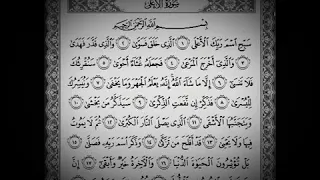 سورة الأعلى
بسم الله الرحمن الرحيم
سبح اسم ربك الأعلى ١ الذي خلق فسوى ٢ والذي قدر فهدى
٣ والذي أخرج المرعى ٤ فجعله غثاء أحوى ٥ سنقرئك
فلا تنسى ٦ إلا ما شاء الله إنه يعلم الجهر وما يخفى ٧ ونيسرك
لليسرى ٨ فذكر إن نفعت الذكرى ٩ سيذكر من يخشى ١٠
ويتجنبها الأشقى ١١ الذي يصلى النار الكبرى ١٢ ثم لا يموت
فيها ولا يحيى ١٣ قد أفلح من تزكى ١٤ وذكر اسم ربه فصلى ١٥
بل تؤثرون الحيوة الدنيا ١٦ والآخرة خير وأبقى ١٧